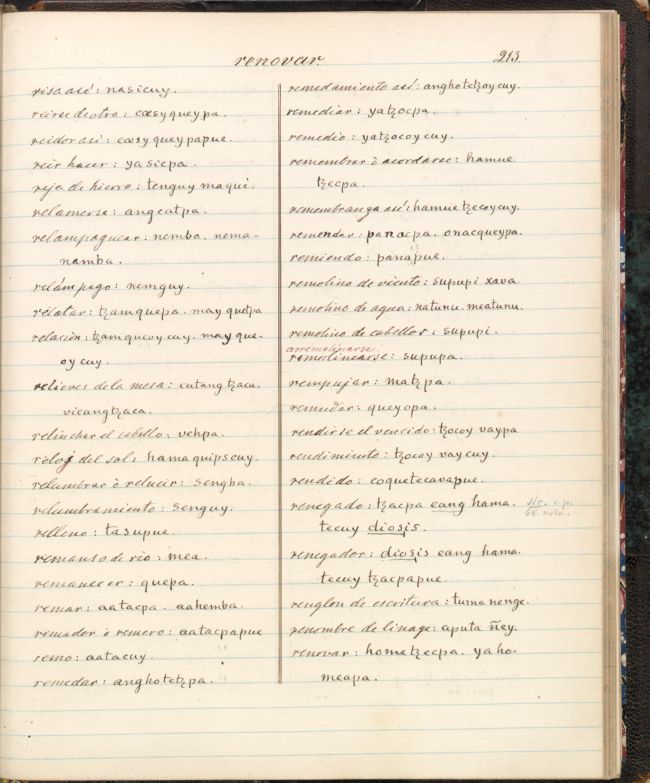 renovar.
213.
risa asi: nasicuy.
reirse de otro: cœsyqueypa.
reidor asi: cœsyqueypapue.
reir hacer: yasicpa.
reja de hierro: tenguy maqui.
relamerse: angcatpa.
relampaguear: nemba. nema-
namba.
relámpago: nemguy.
relatar: tzamquepa. may quetpa
relacion: tzamqucoy cuy. may que-
oy cuy.
relieves de la mesa: cutang tzaca.
vicungtzaca.
relinchar el caballo: vehpa.
reloj del sol: hama quipscuy.
relumbrar ò relucir: sengba.
relumbramiento: senguy.
relleno: tasupue.
remanso de rio: mea.
remanecer: quepa.
remar: aatacpa. aahemba.
remador ò remero: aatacpapue
remo: aatacuy.
remedar: anghotetzpa.
remedamiento asi: anghotetzoycuy.
remediar: yatzocpa.
remedio: yatzocoycuy.
remembrar ò acordarse: hamue
tzecpa.
remembranza asi: hamuetzecoycuy.
remendar: panacpa. onacqueypa.
remiendo: panapue.
remolino de viento: supupi xava.
remolino de agua: natunu. meatunu.
remolino de cabellos: supupi.
arremolinarse.
remolinearse: supupa.
rempujar: matzpa.
remudar: queyopa.
rendirse el vencido: tzocoy vaypa
rendimiento: tzocoy vaycuy.
rendido: coquetecavapue.
renegado: tzacpa eang hama. sic.
tecuy diosis. nota.
renegador: diosis eang hama.
tecuy tzacpapue.
renglon de escritura: tumanenge.
renombre de linage: aputa ñey.
renovar: hometzecpa. yaho-
meapa.